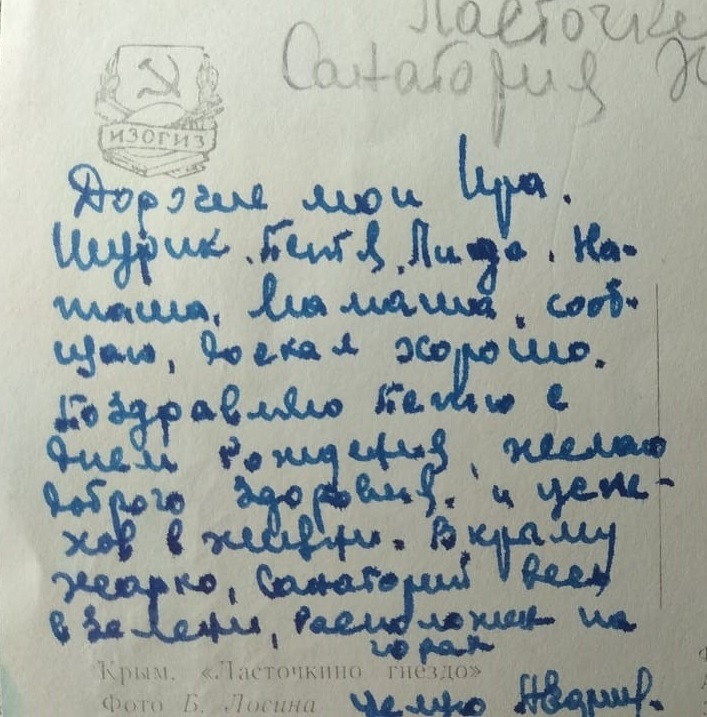 Ласточки
Санатория
ИЗОГИЗ
Дорогие мои Ира.
Шурик. Петя, Лида. На-
таша, Мамаша, сооб-
щаю, доехал хорошо.
Поздравляю Петю с
днем Рождения, желаю
доброго здоровия, и успе-
хов в жизни. В крыму
жарко, Санаторий весь
в Зелени, Расположен на
горах
Крым. «Ласточкино гнездо»
Фото Б. Лосина
целую